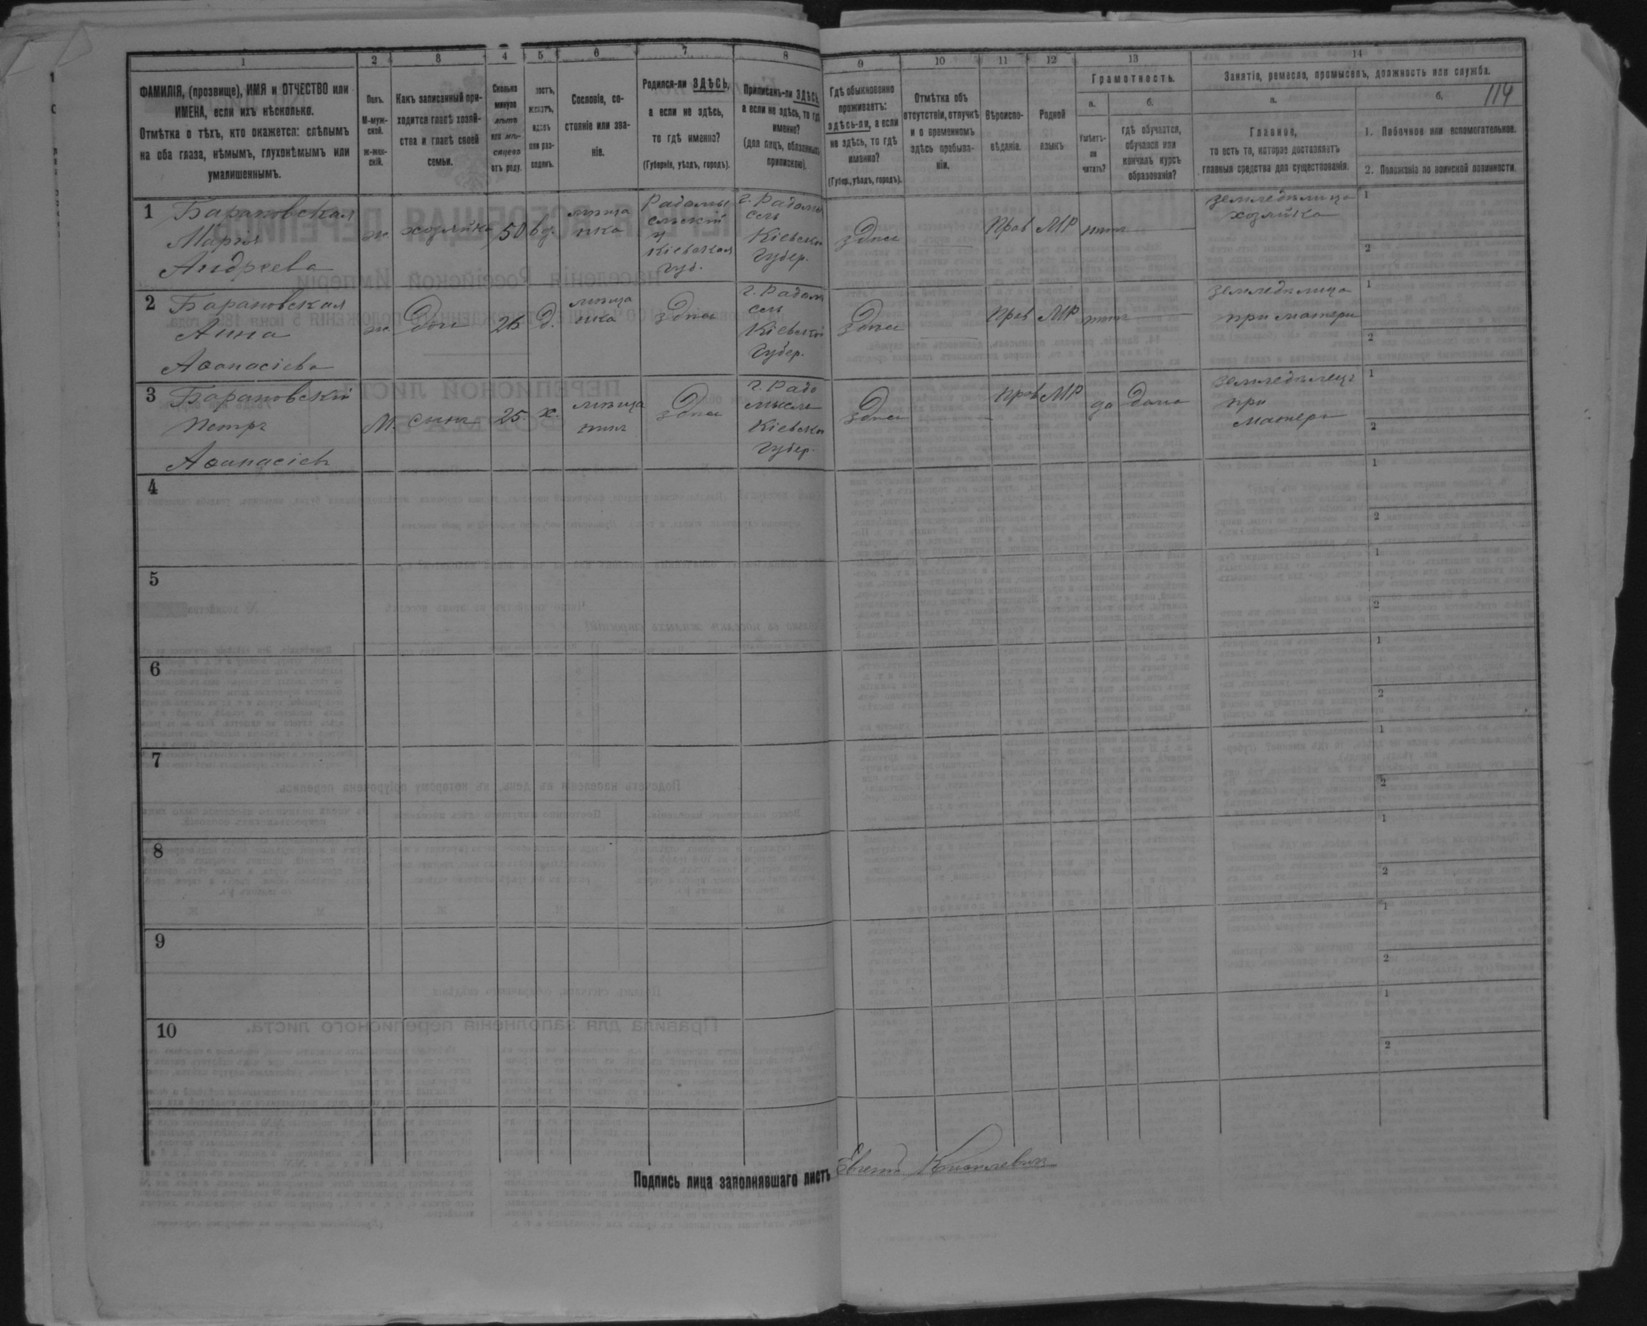 1
2
3
4
5
6
7
8
9
10
11
12
13
14
ФАМИЛІЯ, (прозвище), ИМЯ и ОТЧЕСТВО или
ИМЕНА, если ихъ нѣсколько.
Отмѣтка о тѣхъ, кто окажется: слѣпымъ
на оба глаза, нѣмымъ, глухонѣмымъ или
умалишеннымъ.
Полъ.
М-муж-
ской.
Ж-жен-
скій.
Какъ записанный при-
ходится главѣ хозяй-
ства и главѣ своей
семьи.
Сколько
минуло
лѣтъ
или мѣ-
сяцевъ
отъ роду.
Сословіе, со-
стояніе или зва-
ніе.
Родился-ли ЗДѢСЬ,
а если не здѣсь,
то гдѣ именно?
(Губернія, уѣздъ, городъ).
Приписанъ-ли ЗДѢСЬ,
а если не здѣсь, то гдѣ
именно?
(для лицъ, обязанныхъ
припискою).
Гдѣ обыкновенно
проживаетъ:
здѣсь-ли, а если
не здѣсь, то гдѣ
именно?
(Губер., уѣздъ, городъ).
Отмѣтка объ
отсутствіи, отлучкѣ
и о временномъ
здѣсь пребыва-
ніи.
Вѣроиспо-
вѣданіе.
Родной
языкъ.
Грамотность.
а.
Умѣетъ-
ли
читать?
б.
гдѣ обучается,
обучался или
кончилъ курсъ
образованія?
Занятіе, ремесло, промыселъ, должность или служба.
114
а.
Главное,
то есть то, которое доставляетъ
главныя средства для существованія.
б.
1. Побочное или вспомогательное.
2. Положеніе по воинской повинности.
1 Барановская
Марія
Андреева
ж
хозяйка
50
вд.
мѣща
нка
Радомы
сльскій
у
Кіевская
Губ.
г. Радомы
сль
Кіевской
Губер.
здѣсь
Прав
МР
нѣтъ
земледѣлица
хозяйка
1
2
2 Барановская
Анна
Аѳанасіева
ж
Дочь
26
д.
мѣща
нка
здѣсь
г. Радом
сль
Кіевской
Губер.
здѣсь
Прав
МР
нѣтъ
земледѣлица
при матери
1
2
3 Барановскій
Петръ
Аѳанасіев
М.
сынъ
25
х.
мѣща
нинъ
здѣсь
г. Радо
мысль
Кіевской
Губер.
здѣсь
Прав
МР
да
дома
земледѣлецъ
при
матери
1
2
4
1
2
5
1
2
6
1
2
7
1
2
8
1
2
9
1
2
10
1
2
Подпись лица заполнявшаго листъ